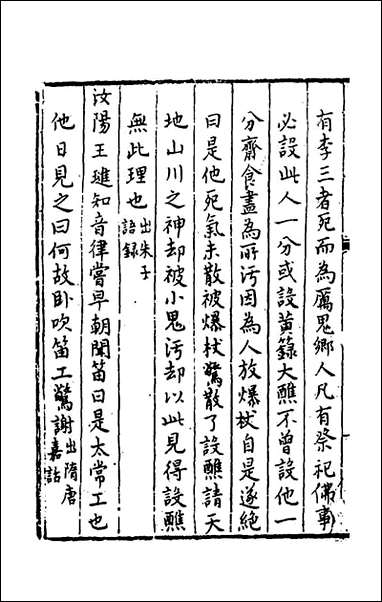 有李三者死而為厲鬼鄉人凡有祭祀佛事
必設此人一分或設黄籙大醮不曾設他一
分齋食盡為所汚因為人放爆杖自是遂絶
曰是他死氣未散被爆杖驚散了設醮請天
地山川之神却被小鬼汚却以此見得設醮
無此理也出朱子語録
汝陽王璡知音律嘗早朝聞笛曰是太常工也
他日見之曰何故卧吹笛工驚謝出隋唐嘉話